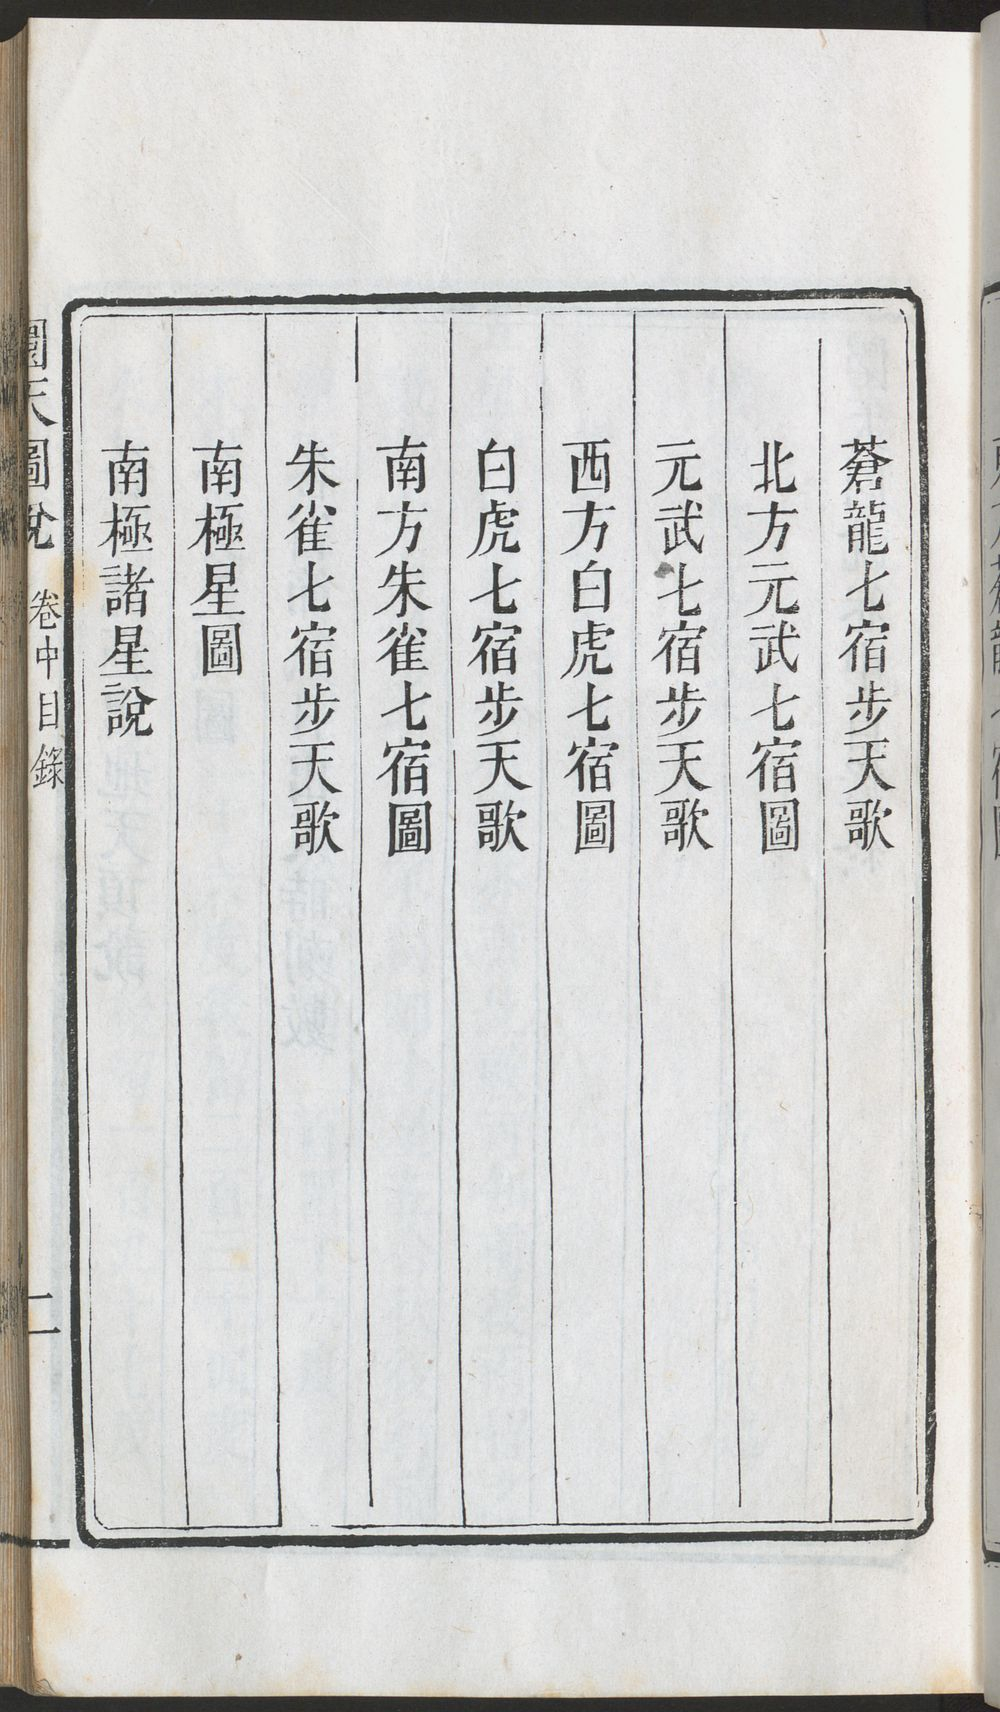 蒼龍七宿步天歌
北方元武七宿圖
元武七宿步天歌
西方白虎七宿圖
白虎七宿步天歌
南方朱雀七宿圖
朱雀七宿步天歌
南極星圖
南極諸星說
圜天圖說 卷中目錄 二